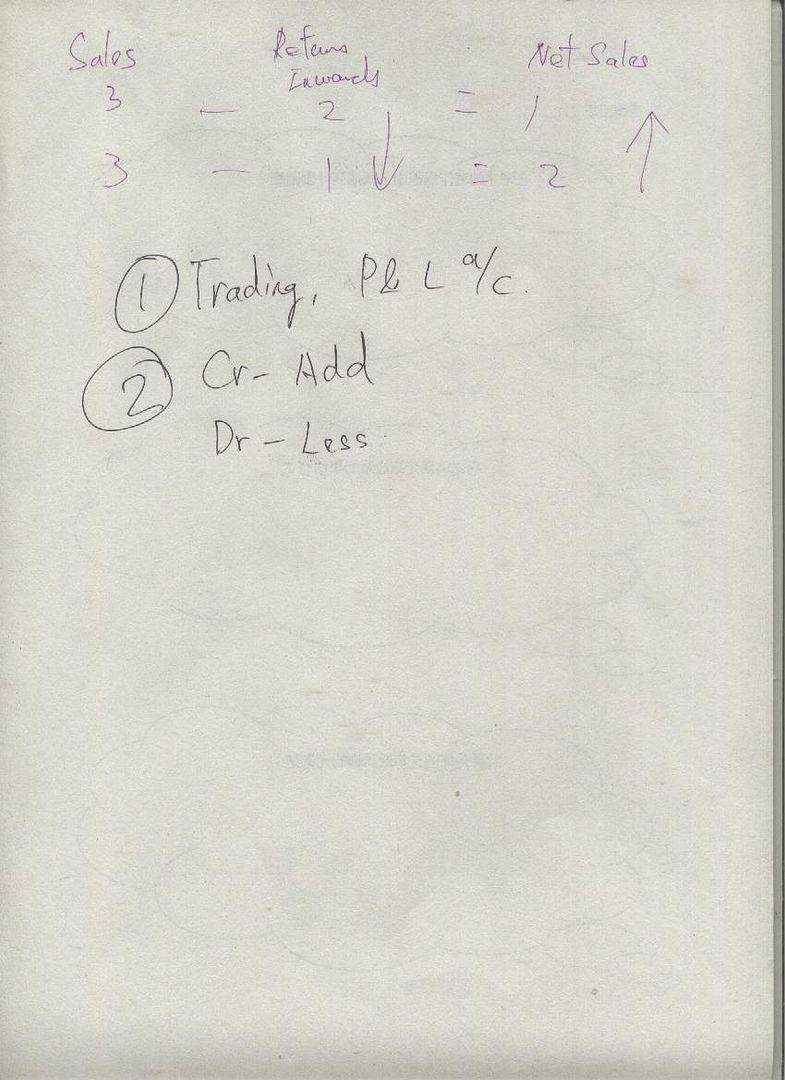 Sales Returns Inwards Net Sales
3 — 2 = 1
3 — 1 = 2
① Trading, P & L a/c.
② Cr - Add
Dr - Less.